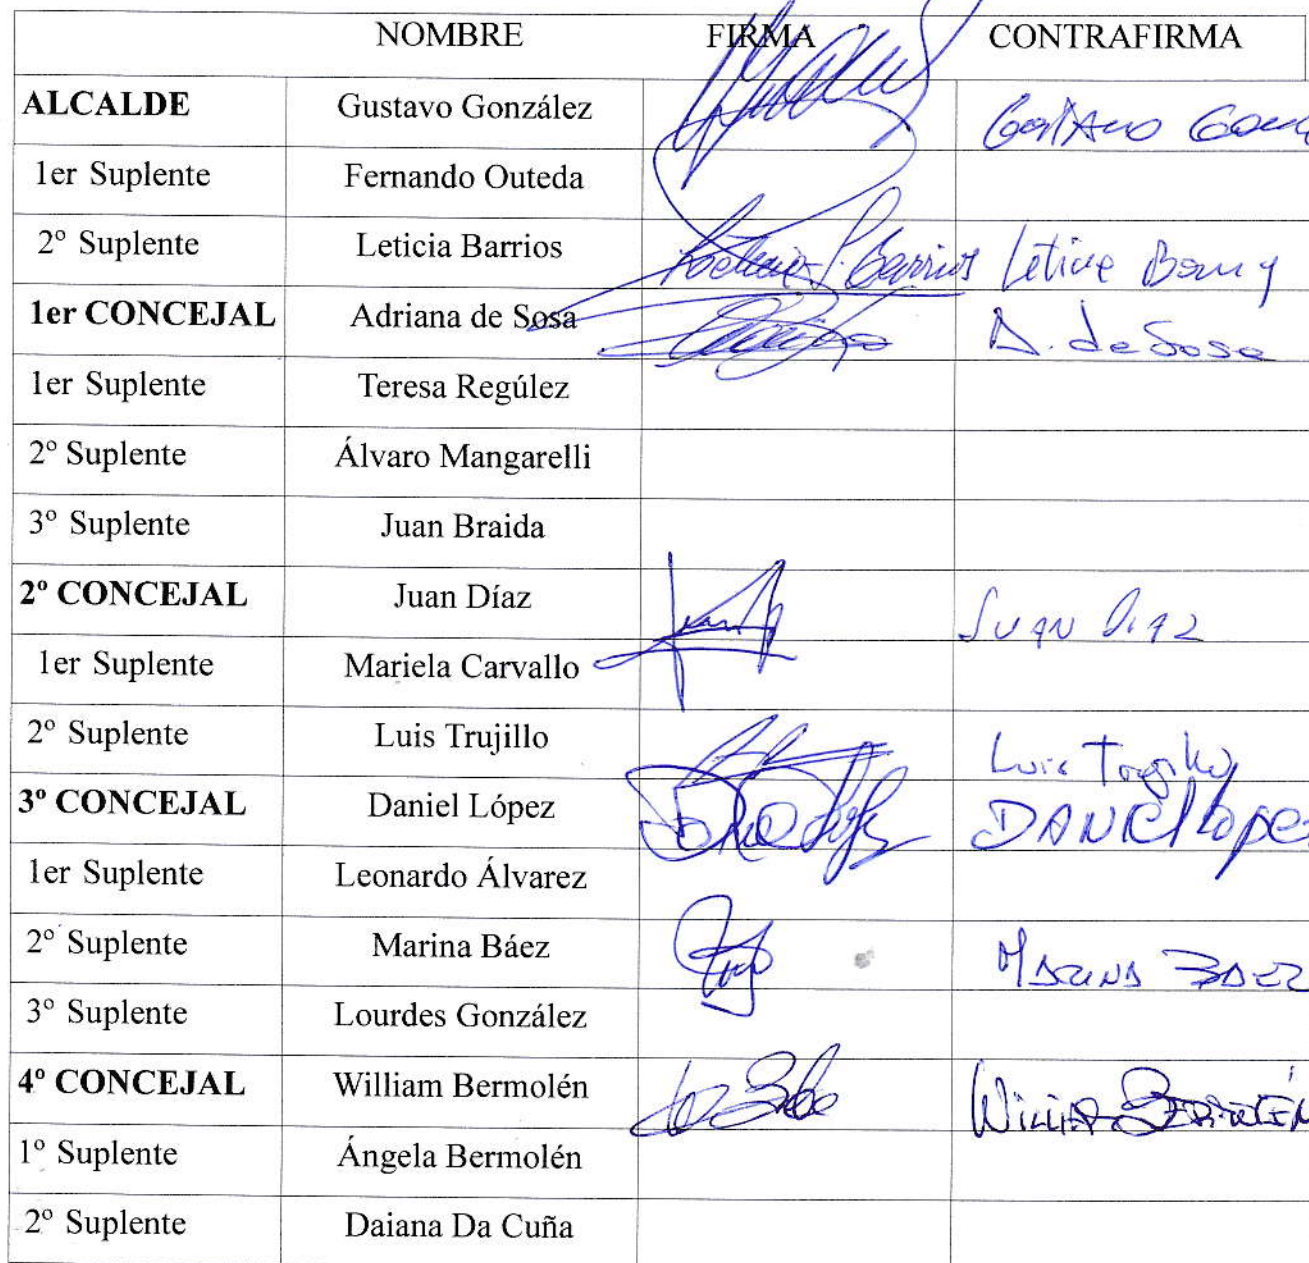 NOMBRE FIRMA CONTRAFIRMA
ALCALDE Gustavo González
1er Suplente Fernando Outeda
2º Suplente Leticia Barrios Barrios Leticia
1er CONCEJAL Adriana de Sosa A. de Sosa
1er Suplente Teresa Regúlez
2º Suplente Álvaro Mangarelli
3º Suplente Juan Braida
2º CONCEJAL Juan Díaz JUAN DIAZ
1er Suplente Mariela Carvallo
2º Suplente Luis Trujillo Luis Trujillo
3º CONCEJAL Daniel López DANIEL Lopez
1er Suplente Leonardo Álvarez
2º Suplente Marina Báez MARINA BAEZ
3º Suplente Lourdes González
4º CONCEJAL William Bermolén
1º Suplente Ángela Bermolén
2º Suplente Daiana Da Cuña